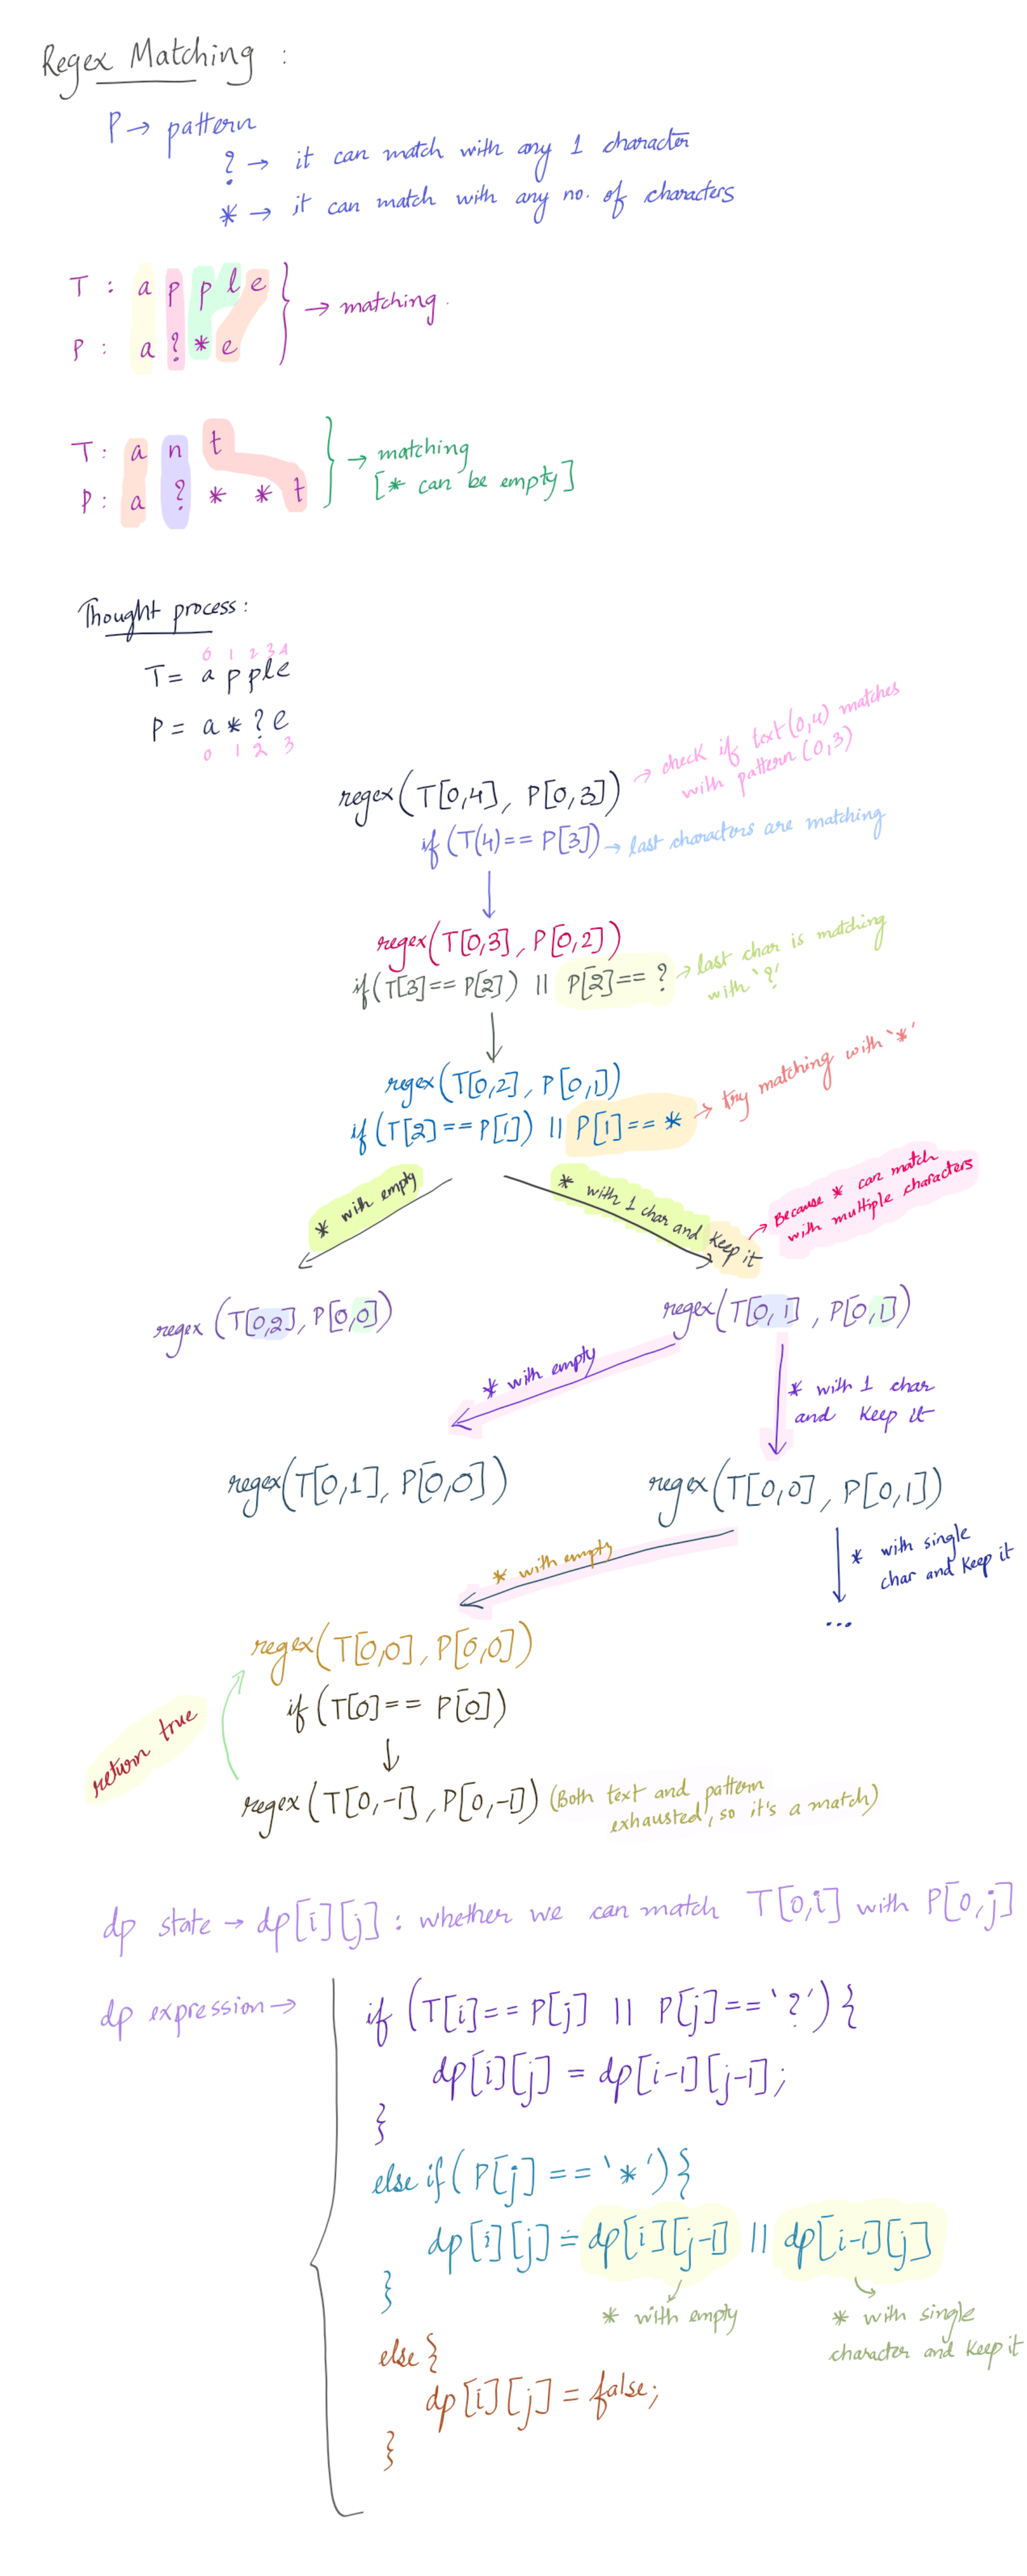 Regex Matching :
P → pattern
? → it can match with any 1 character
* → it can match with any no. of characters
T : a p p l e } → matching.
P : a ? * e
T : a n t } → matching
[* can be empty]
P : a ? * * t
Thought process :
0 1 2 3 4
T = a p p l e
P = a * ? e
0 1 2 3
regex(T[0,4], P[0,3]) → check if text(0,4) matches
with pattern (0,3)
if (T(4) == P[3]) → last characters are matching
regex(T[0,3], P[0,2])
if (T[3] == P[2]) || P[2] == ? → last char is matching
with '?'
regex(T[0,2], P[0,1])
if (T[2] == P[1]) || P[1] == * → try matching with '*'
* with empty
* with 1 char and keep it → Because * can match
with multiple characters
regex (T[0,2], P[0,0])
regex(T[0,1], P[0,1])
* with empty
* with 1 char
and keep it
regex(T[0,1], P[0,0])
regex(T[0,0], P[0,1])
* with empty
* with single
char and keep it
...
regex(T[0,0], P[0,0])
if (T[0] == P[0])
return true
regex(T[0,-1], P[0,-1]) (Both text and pattern
exhausted, so it's a match)
dp state → dp[i][j] : whether we can match T[0,i] with P[0,j]
dp expression →
if (T[i] == P[j] || P[j] == '?') {
dp[i][j] = dp[i-1][j-1];
}
else if (P[j] == '*') {
dp[i][j] = dp[i][j-1] || dp[i-1][j]
}
* with empty
* with single
character and keep it
else {
dp[i][j] = false;
}